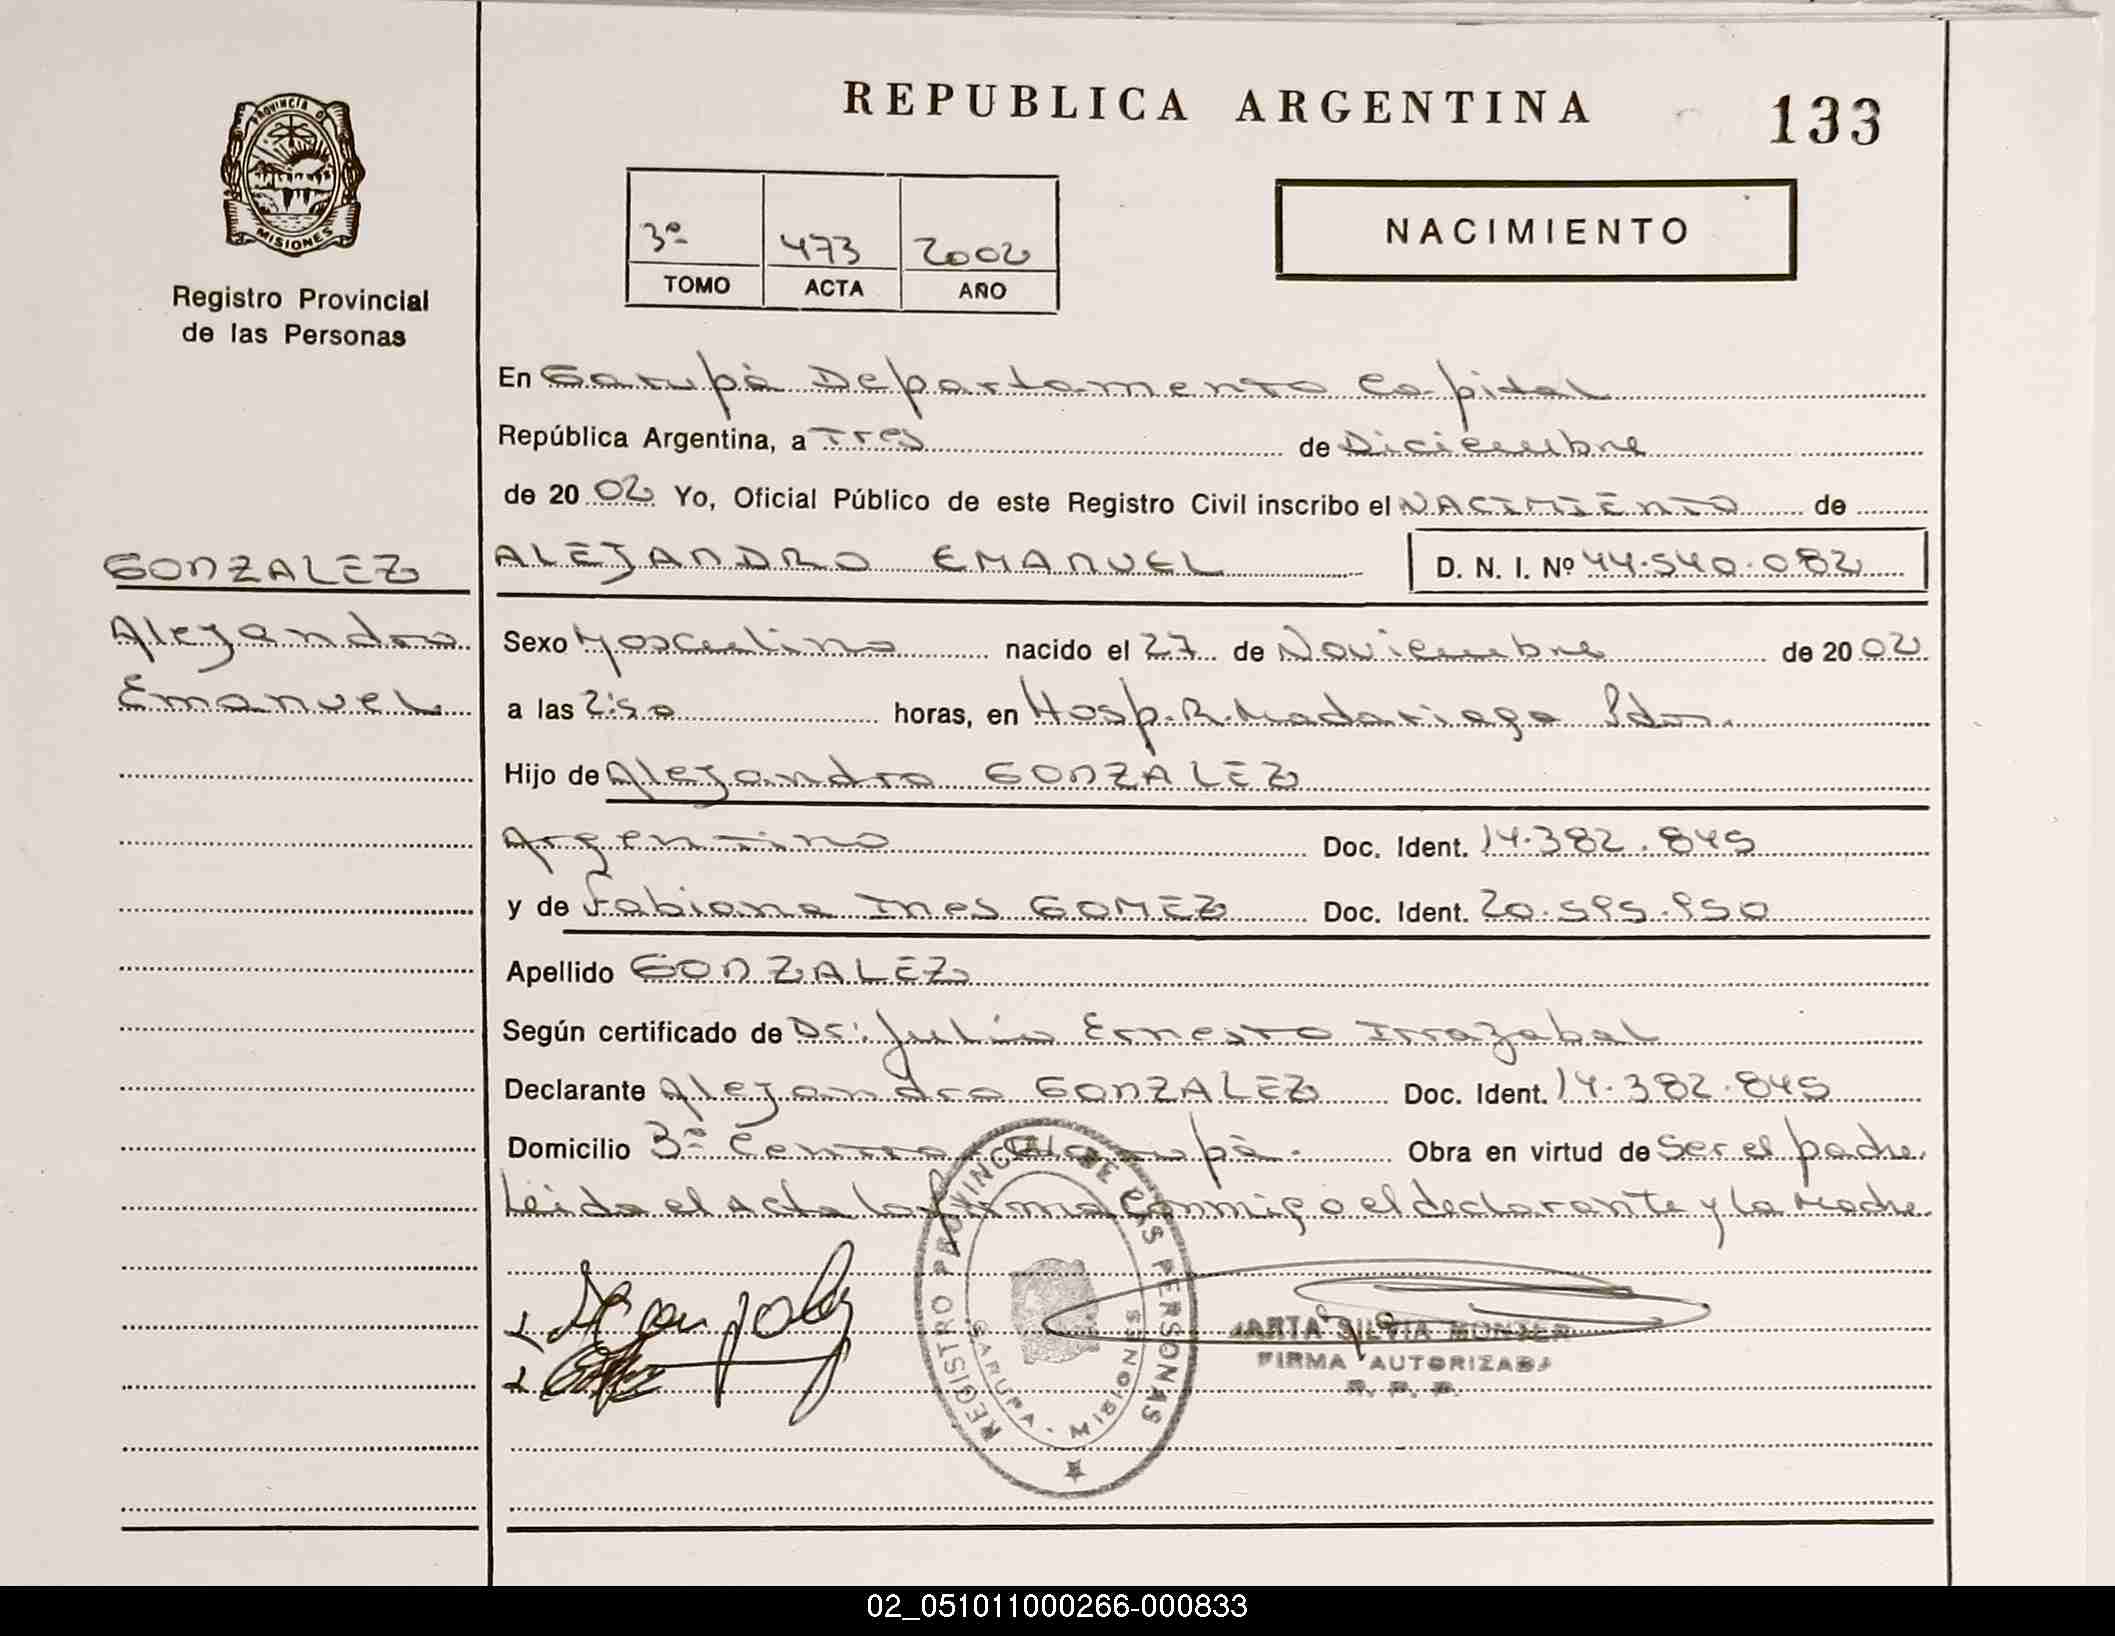 REPUBLICA ARGENTINA
133
PROVINCIA DE
MISIONES
Registro Provincial
de las Personas
3º 473 2002
TOMO ACTA AÑO
NACIMIENTO
En Garupá Departamento Capital
República Argentina, a Tres de Diciembre
de 2002 Yo, Oficial Público de este Registro Civil inscribo el NACIMIENTO de
GONZALEZ
Alejandro
Emanuel
ALEJANDRO EMANUEL D. N. I. Nº 44.540.082
Sexo Masculino nacido el 27 de Noviembre de 2002
a las 2:50 horas, en Hosp. R. Madariaga Pdas.
Hijo de Alejandro GONZALEZ
Argentino Doc. Ident. 14.382.845
y de Fabiana Ines GOMEZ Doc. Ident. 20.595.950
Apellido GONZALEZ
Según certificado de Dr. Julio Ernesto Irrazabal
Declarante Alejandro GONZALEZ Doc. Ident. 14.382.845
Domicilio 3º Centro Garupá. Obra en virtud de Ser el padre.
Leida el acta la firma conmigo el declarante y la Madre
REGISTRO PROVINCIAL DE LAS PERSONAS
GARUPA - MISIONES
MARTA SILVIA
FIRMA AUTORIZADA
R. P. P.
02_051011000266-000833